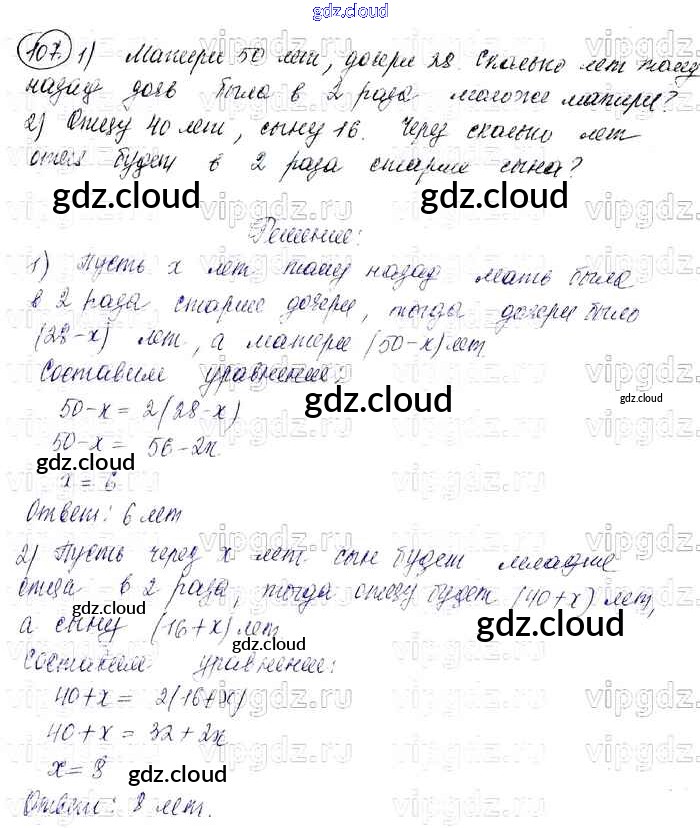 gdz.cloud
107. 1) Матери 50 лет, дочери 28. Сколько лет тому
назад дочь была в 2 раза моложе матери?
2) Отцу 40 лет, сыну 16. Через сколько лет
отец будет в 2 раза старше сына?
gdz.cloud gdz.cloud
Решение:
1) Пусть x лет тому назад мать была
в 2 раза старше дочери, тогда дочери было
(28-x) лет, а матери (50-x) лет
Составим уравнение:
gdz.cloud
50-x = 2(28-x)
gdz.cloud
50-x = 56-2x
gdz.cloud
x = 6
Ответ: 6 лет
2) Пусть через x лет сын будет младше
отца в 2 раза, тогда отцу будет (40+x) лет,
gdz.cloud
а сыну (16+x) лет
gdz.cloud
gdz.cloud
Составим уравнение:
40+x = 2(16+x)
40+x = 32+2x
x = 8
gdz.cloud
Ответ: 8 лет.